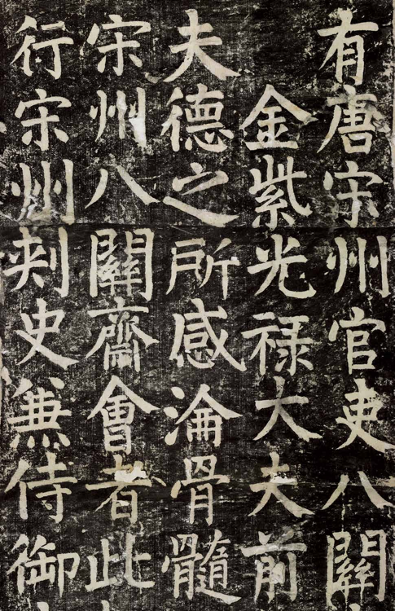 有唐宋州官吏八關
金紫光禄大夫前
夫德之所感淪骨髓
宋州八關齋會者此
行宋州刾史兼侍御